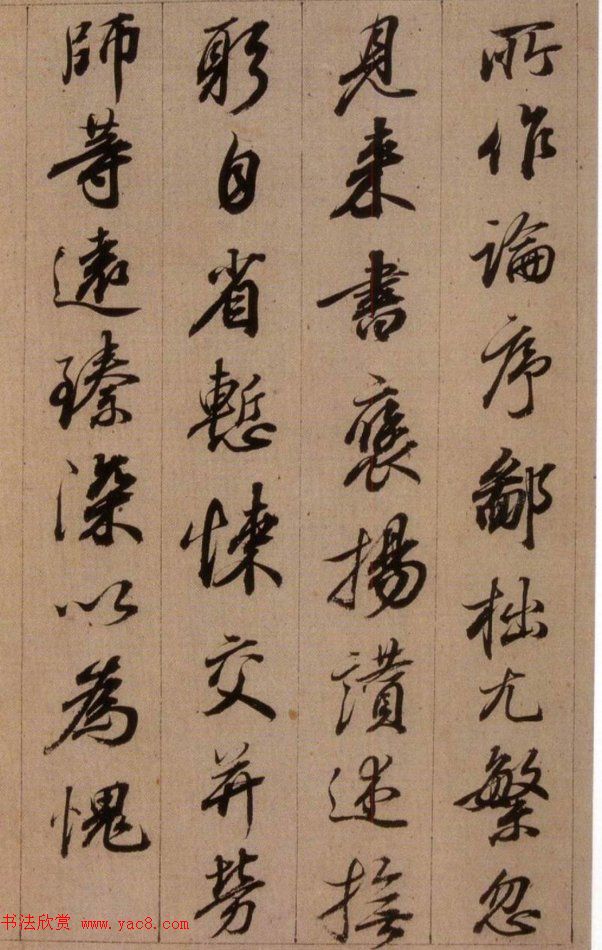 所作論序鄙拙尤繁忽
見来書褒揚讃述撫
躬自省慙悚交并勞
師等遠臻深以為愧
书法欣赏 www.yac8.com